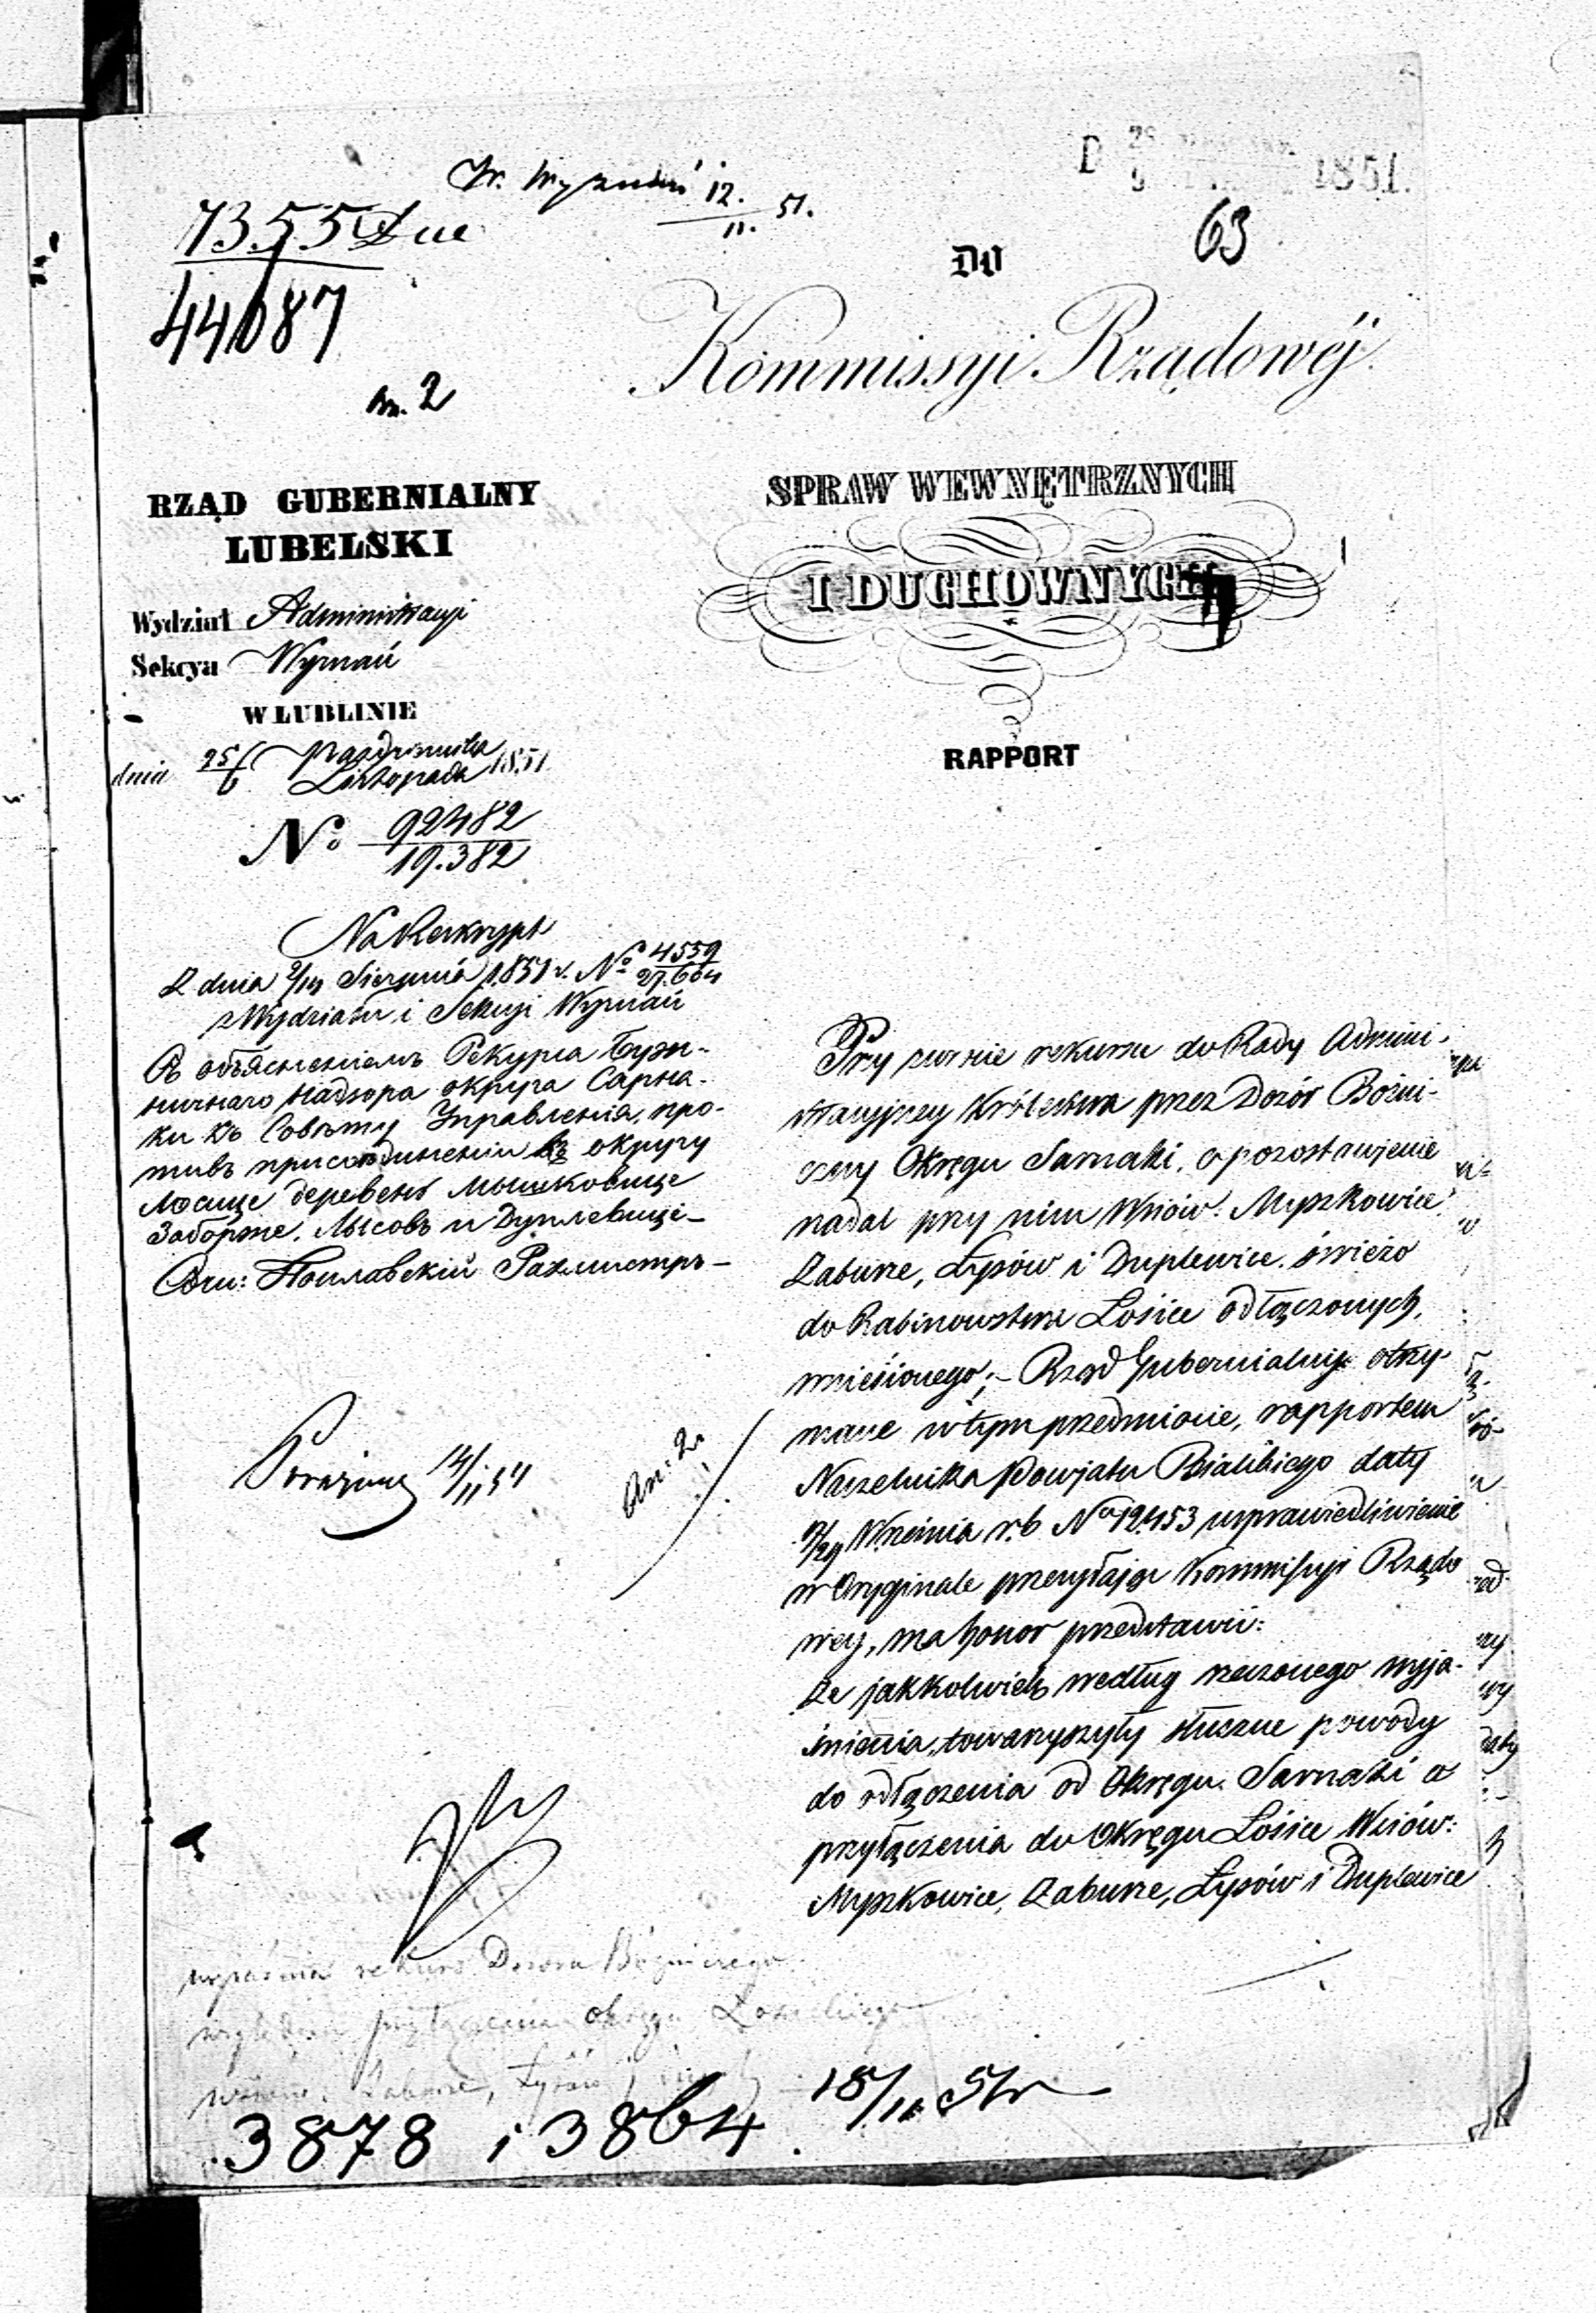 1851.
12.
11. 51.
7355 Due
63
44087
DO
Kommissyi Rządowéj
an. 2
RZĄD GUBERNIALNY
LUBELSKI
SPRAW WEWNĘTRZNYCH
I DUCHOWNYCH
Wydział Administracyi
Sekcya Wyznań
W LUBLINIE
dnia 25/6 Października
Listopada 1851
RAPPORT
No 92482
19.382
Na Reskrypt
Z dnia 2/14 Sierpnia 1851 r. No 4559
27.664
z Wydziału i Sekcyi Wyznań
Съ объясненіемъ Рекурса Бужничнаго
надзора округа Сарнаки
къ Совѣту Управленія, противъ
присоединенія въ округу
Лосице деревень Мышковице
Заборже, Лысовъ и Дуплевице –
Соч: Поплавскій Рахмистръ –
Przy zwrocie rekursu do Rady Admini-
stracyjney Królestwa przez Dozór Bożni-
czny Okręgu Sarnaki, o pozostawienie
nadal przy nim Wsiów: Myszkowice
Zaburze, Łysów i Duplewice świeżo
do Rabinowstwa Łosice odłączonych,
wniesionego; – Rząd Gubernialny otrzy-
mane w tym przedmiocie, rapportem
Naczelnika Powiatu Bialskiego daty
12/24 Września r. b. No 12453 usprawiedliwienie
w Oryginale przesyłając Kommissyi Rządo
wey, ma honor przedstawić:
Że jakkolwiek według rzeczonego wyja-
śnienia, towarzyszyły słuszne powody
do odłączenia od Okręgu Sarnaki a
przyłączenia do Okręgu Łosice Wsiów:
Myszkowice, Zaburze, Łysów i Duplewice
an: 2.
14/11 51
wyjaśnia rekurs Dozoru Bóżniczego
względem przyłączenia okręgu Łosickiego
Zaburze, Łysów i
3878 i 3864. 15/11 51 r